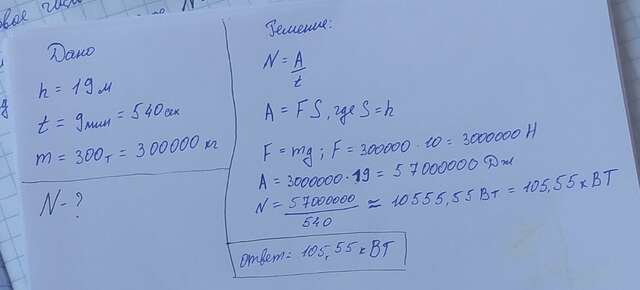 Дано
h = 19 м
t = 9 мин = 540 сек
m = 300 т = 300000 кг
N - ?
Решение:
N = A / t
A = F S, где S = h
F = mg ; F = 300000 · 10 = 3000000 Н
A = 3000000 · 19 = 57000000 Дж
N = 57000000 / 540 ≈ 10555,55 Вт = 105,55 кВТ
ответ = 105,55 кВТ